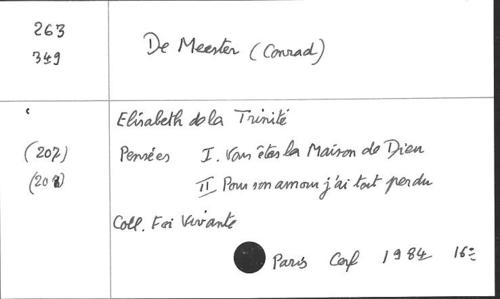 263
349
De Meester (Conrad)
Elisabeth de la Trinité
(207) Pensées I. Vous êtes la Maison de Dieu
(208) II Pour son amour j'ai tout perdu
Coll. Foi Vivante
Paris Cerf 1984 16=